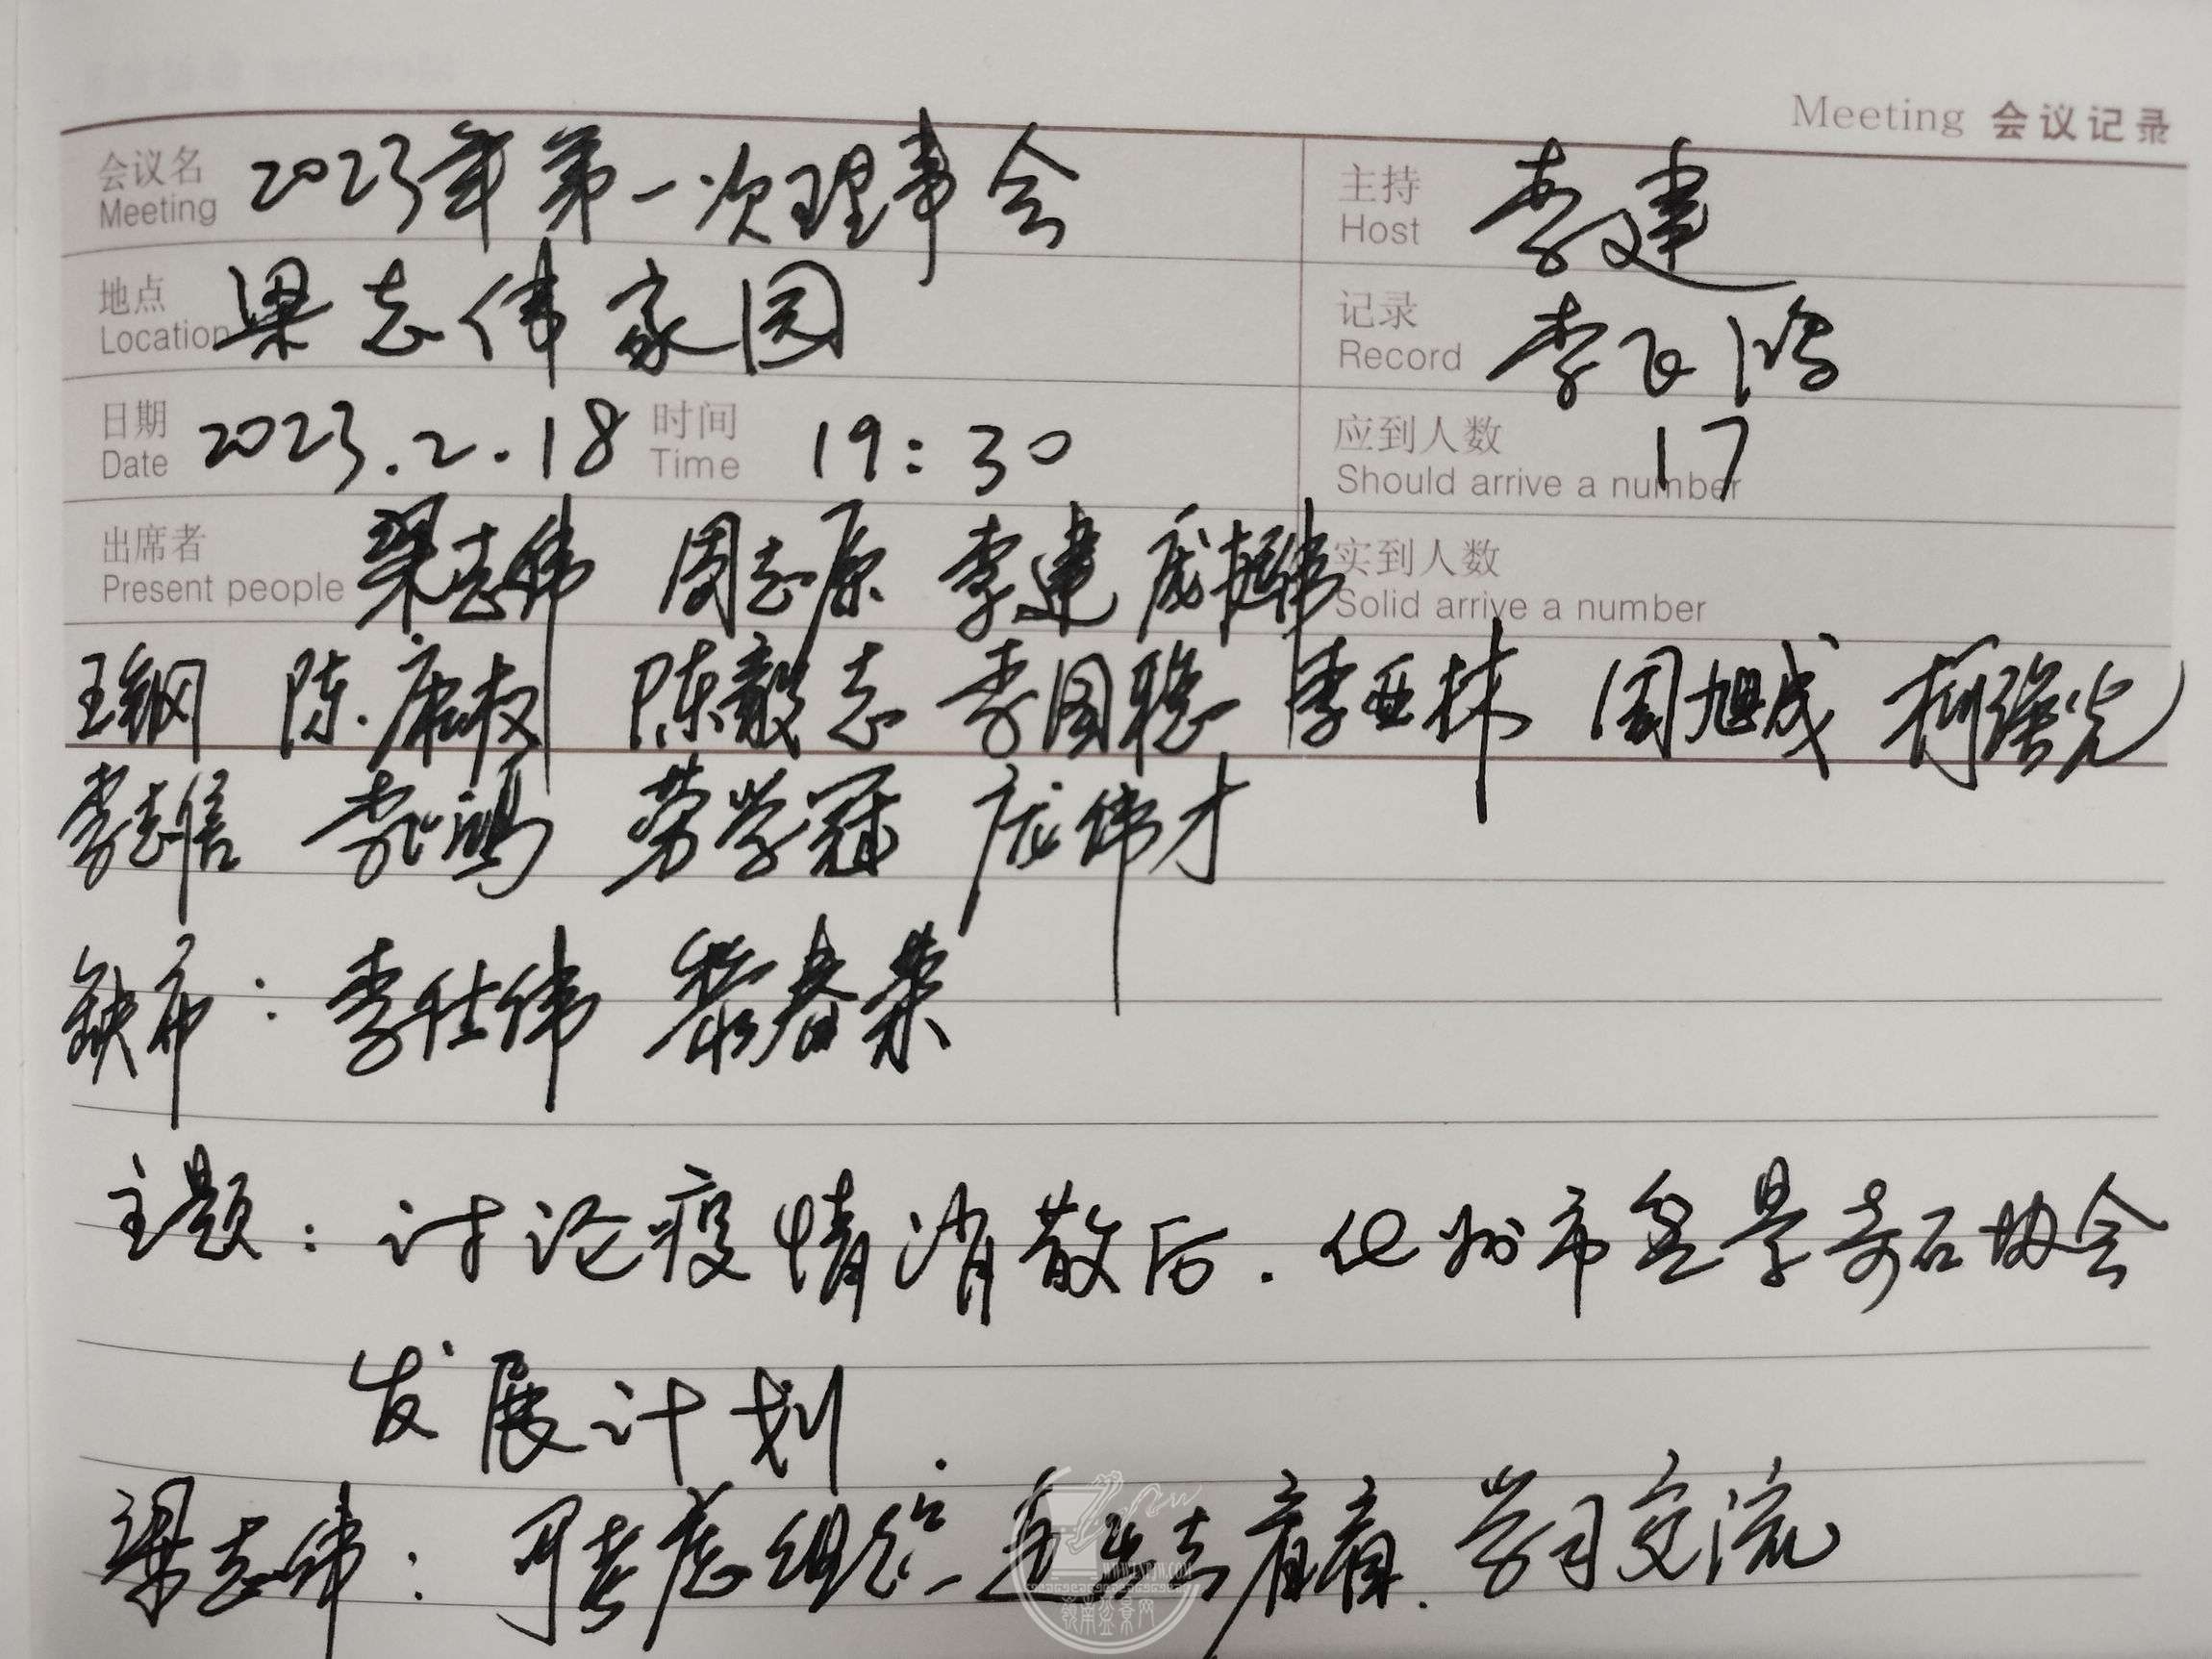 Meeting 会议记录
会议名 2023年第一次理事会 主持 李建
Meeting Host
地点 梁志伟家园 记录 李飞鸿
Location Record
日期 2023.2.18 时间 19:30 应到人数 17
Date Time Should arrive a number
出席者 梁志伟 周志原 李建 庞挺伟 实到人数
Present people Solid arrive a number
王钢 陈康权 陈毅志 李国聪 李亚林 周旭成 柯强光
李志信 李飞鸿 劳学冠 庞伟才
缺席: 李仕伟 黎春荣
主题: 讨论疫情消散后. 化州市盆景奇石协会
发展计划.
梁志伟: 可考虑组织 走出去看看. 学习交流
岭南盆景网